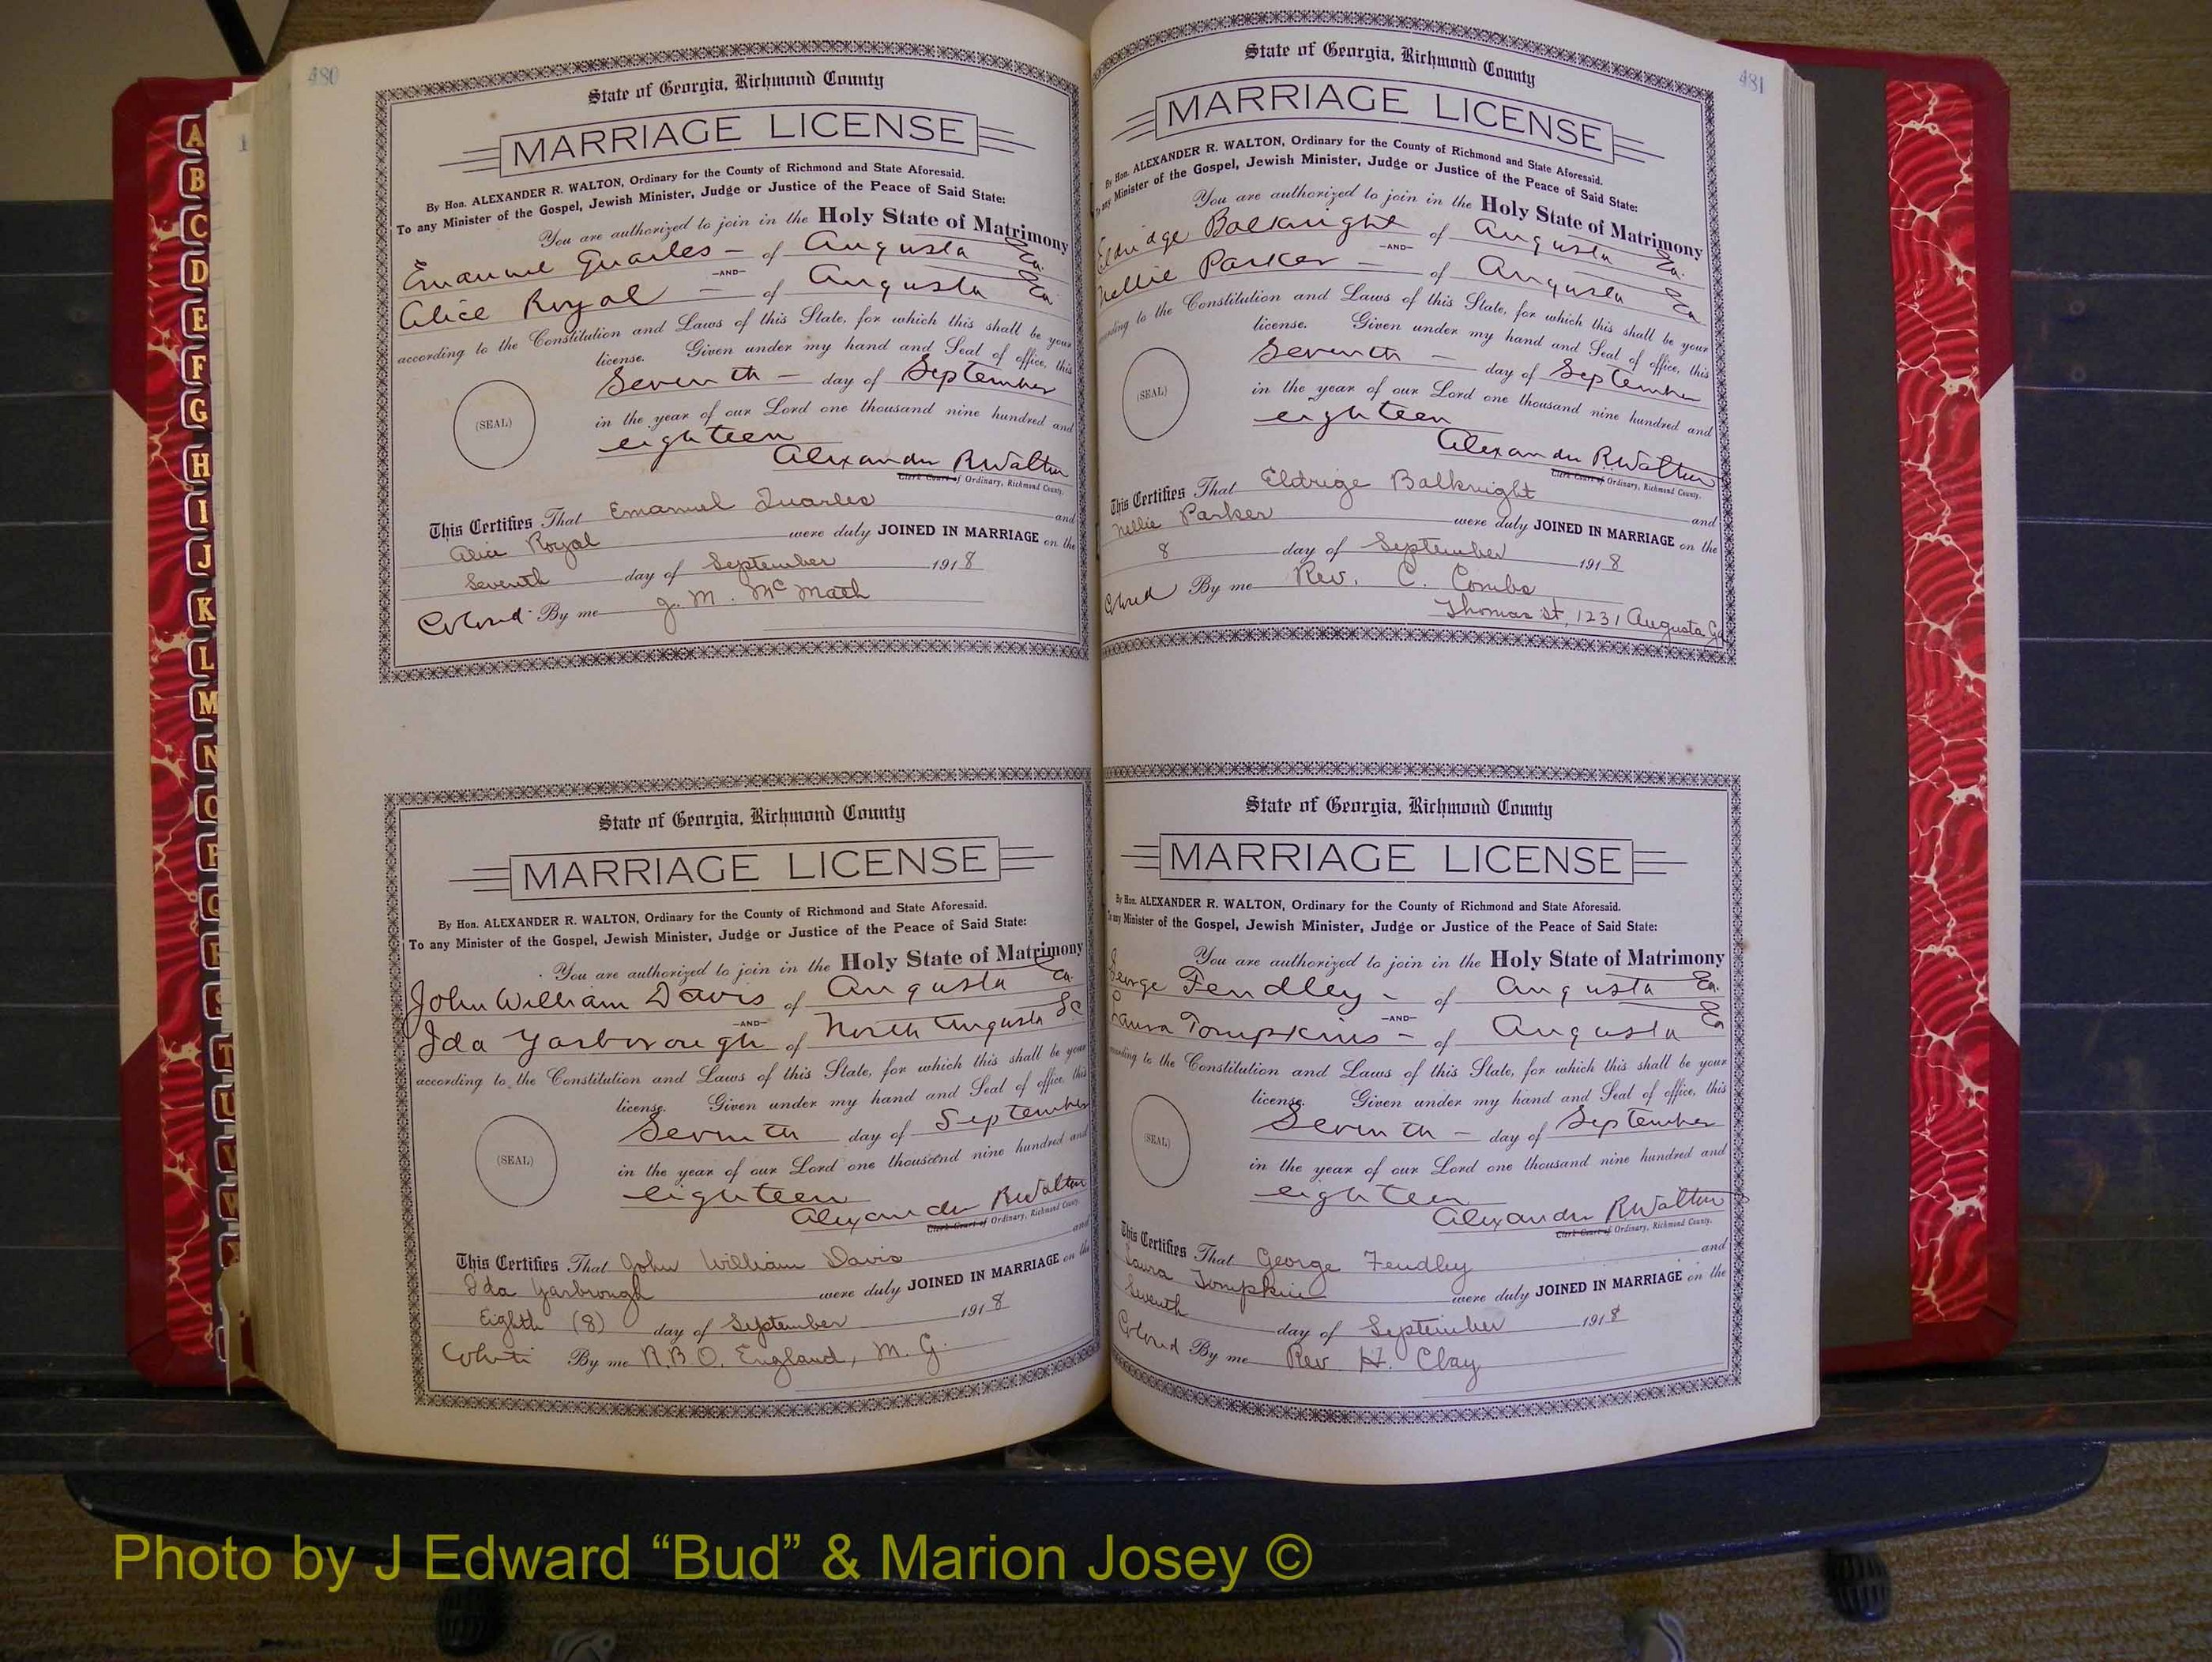 480
State of Georgia, Richmond County
MARRIAGE LICENSE
By Hon. ALEXANDER R. WALTON, Ordinary for the County of Richmond and State Aforesaid.
To any Minister of the Gospel, Jewish Minister, Judge or Justice of the Peace of Said State:
You are authorized to join in the Holy State of Matrimony
Emanuel Quarles - of Augusta Ga.
-AND-
Alice Royal - of Augusta Ga
according to the Constitution and Laws of this State, for which this shall be your
license. Given under my hand and Seal of office, this
Seventh - day of September
(SEAL)
in the year of our Lord one thousand nine hundred and
eighteen
Alexander R Walton
Clerk Court of Ordinary, Richmond County.
This Certifies That Emanuel Quarles and
Alice Royal were duly JOINED IN MARRIAGE on the
Seventh day of September 1918
Colored By me J. M. McMath
State of Georgia, Richmond County
MARRIAGE LICENSE
By Hon. ALEXANDER R. WALTON, Ordinary for the County of Richmond and State Aforesaid.
To any Minister of the Gospel, Jewish Minister, Judge or Justice of the Peace of Said State:
You are authorized to join in the Holy State of Matrimony
John William Davis of Augusta Ga.
-AND-
Ida Yarborough of North Augusta SC
according to the Constitution and Laws of this State, for which this shall be your
license. Given under my hand and Seal of office, this
Seventh day of September
(SEAL)
in the year of our Lord one thousand nine hundred and
eighteen
Alexander R Walton
Clerk Court of Ordinary, Richmond County.
This Certifies That John William Davis and
Ida Yarbrough were duly JOINED IN MARRIAGE on the
Eighth (8) day of September 1918
White By me R.B.O. England, M. G.
481
State of Georgia, Richmond County
MARRIAGE LICENSE
By Hon. ALEXANDER R. WALTON, Ordinary for the County of Richmond and State Aforesaid.
To any Minister of the Gospel, Jewish Minister, Judge or Justice of the Peace of Said State:
You are authorized to join in the Holy State of Matrimony
Eldridge Balknight of Augusta Ga.
-AND-
Nellie Parker - of Augusta Ga
according to the Constitution and Laws of this State, for which this shall be your
license. Given under my hand and Seal of office, this
Seventh - day of September
(SEAL)
in the year of our Lord one thousand nine hundred and
eighteen
Alexander R. Walton
Clerk Court of Ordinary, Richmond County.
This Certifies That Eldrige Balknight and
Nellie Parker were duly JOINED IN MARRIAGE on the
8 day of September 1918
Colored By me Rev. C. Combs
Thomas St, 1231 Augusta Ga
State of Georgia, Richmond County
MARRIAGE LICENSE
By Hon. ALEXANDER R. WALTON, Ordinary for the County of Richmond and State Aforesaid.
To any Minister of the Gospel, Jewish Minister, Judge or Justice of the Peace of Said State:
You are authorized to join in the Holy State of Matrimony
George Fendley - of Augusta Ga.
-AND-
Laura Tompkins - of Augusta Ga
according to the Constitution and Laws of this State, for which this shall be your
license. Given under my hand and Seal of office, this
Seventh - day of September
(SEAL)
in the year of our Lord one thousand nine hundred and
eighteen
Alexander R Walton
Clerk Court of Ordinary, Richmond County.
This Certifies That George Fendley and
Laura Tompkins were duly JOINED IN MARRIAGE on the
Seventh day of September 1918
Colored By me Rev. H. Clay
A
B
C
D
E
F
G
H
I
J
K
L
M
N
O
P
Q
R
S
T
U
V
W
Photo by J Edward “Bud” & Marion Josey ©